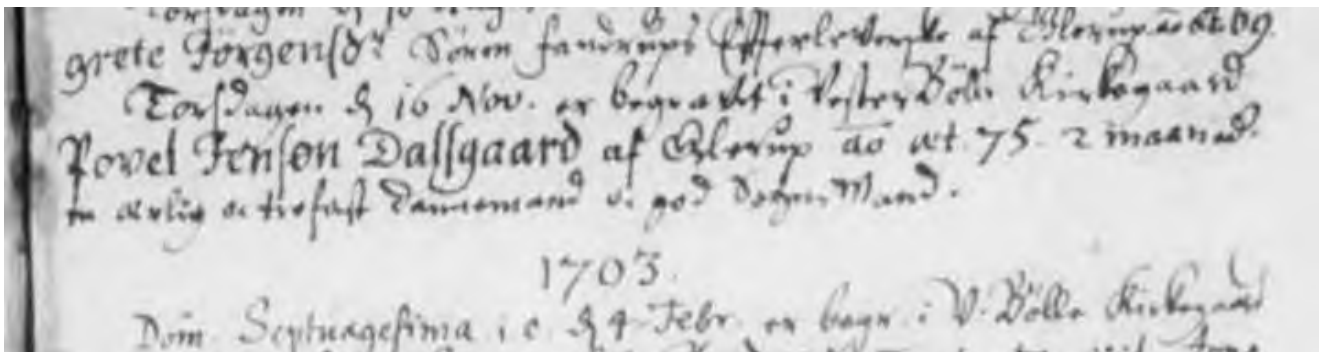 Torsdagen d 16
grete Jörgensdr Sören Fandrups Efterleverske af Glerup ao æt. 69.
Torsdagen d 16 Nov. er begravet i Vester Bölle Kirkegaard
Povel Jensøn Dalsgaard af Glerup ao æt. 75. 2 maaned.
en ærlig oc trofast Dannemand oc god Sogne Mand.
1703.
Dom. Septuagesima i.e. d 4 Febr. er begr. i V. Bölle Kirkegaard